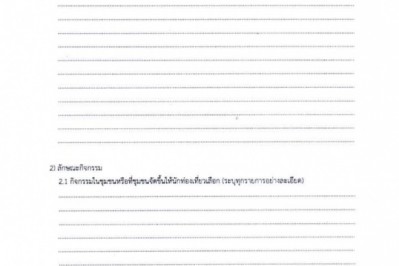 2) ลักษณะกิจกรรม
2.1 กิจกรรมในชุมชนหรือที่ชุมชนจัดขึ้นให้นักท่องเที่ยวเลือก (ระบุทุกรายการอย่างละเอียด)